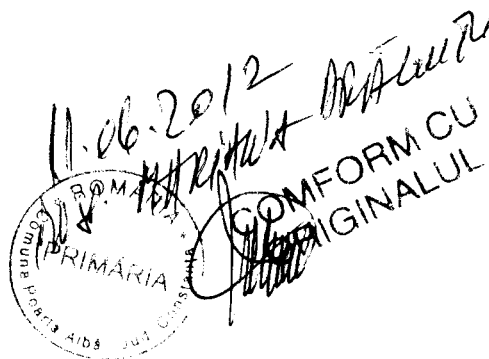 11.06.2012
MARIANA
COMFORM CU
ORIGINALUL
ROMÂNIA
PRIMĂRIA
Comuna Poarta Albă Jud. Constanța